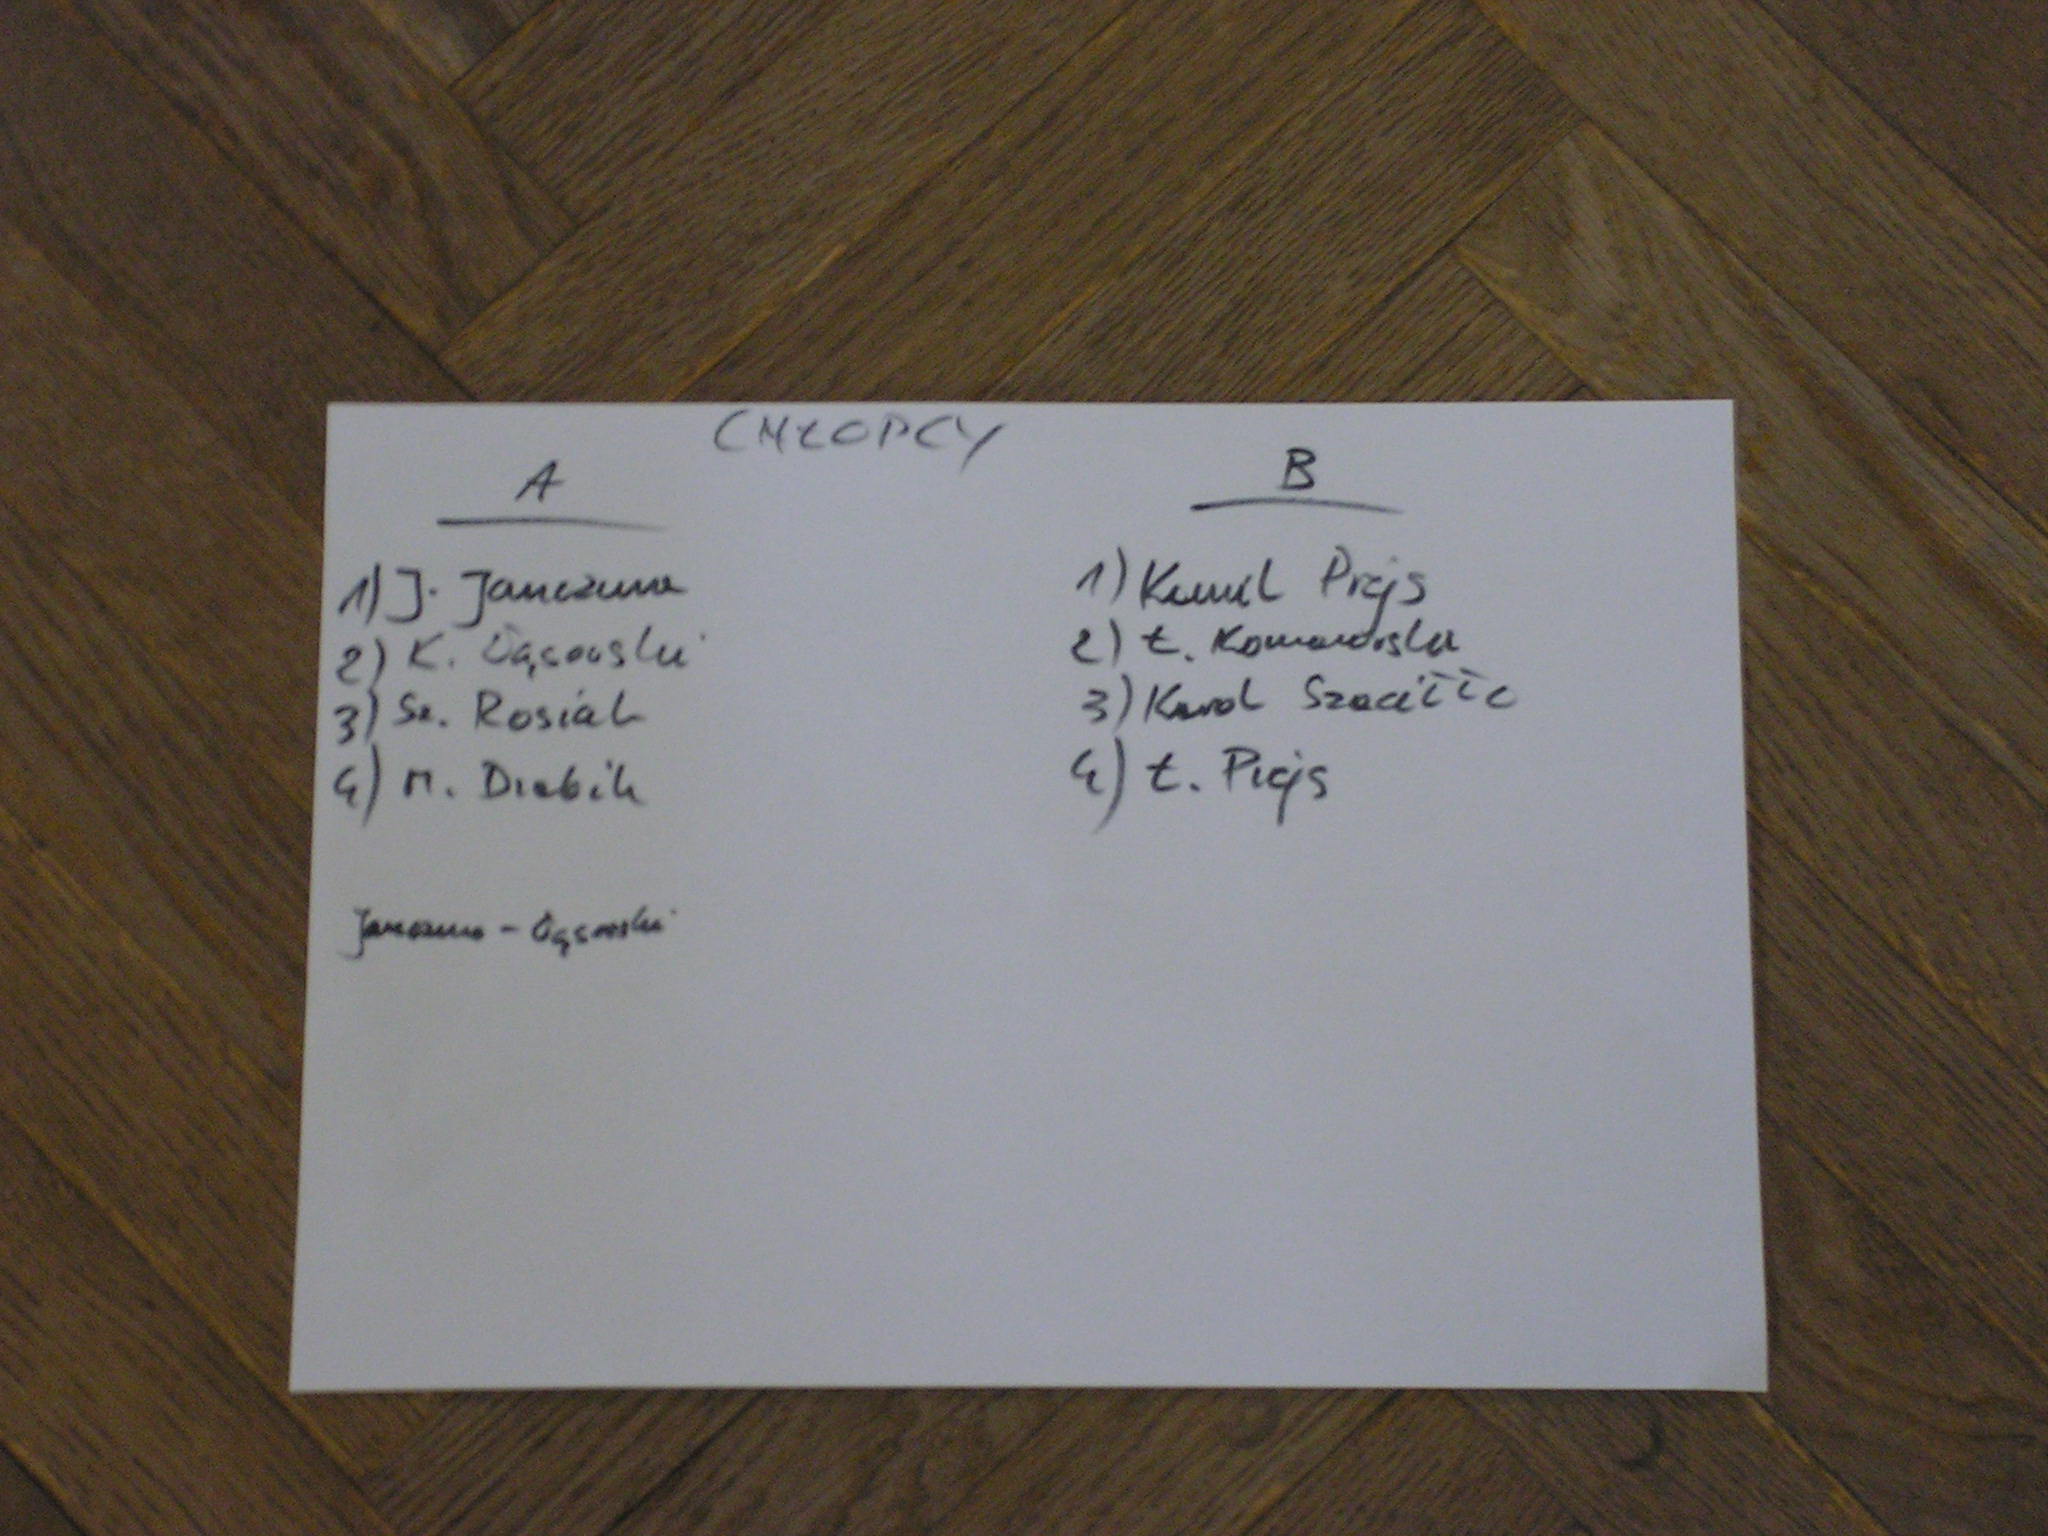 CHŁOPCY
A
1) J. Janczura
2) K. Wąsowski
3) Sz. Rosiak
4) M. Drabik
Janczura - Wąsowski
B
1) Kamil Prejs
2) Ł. Komorowski
3) Karol
4) Ł. Prejs